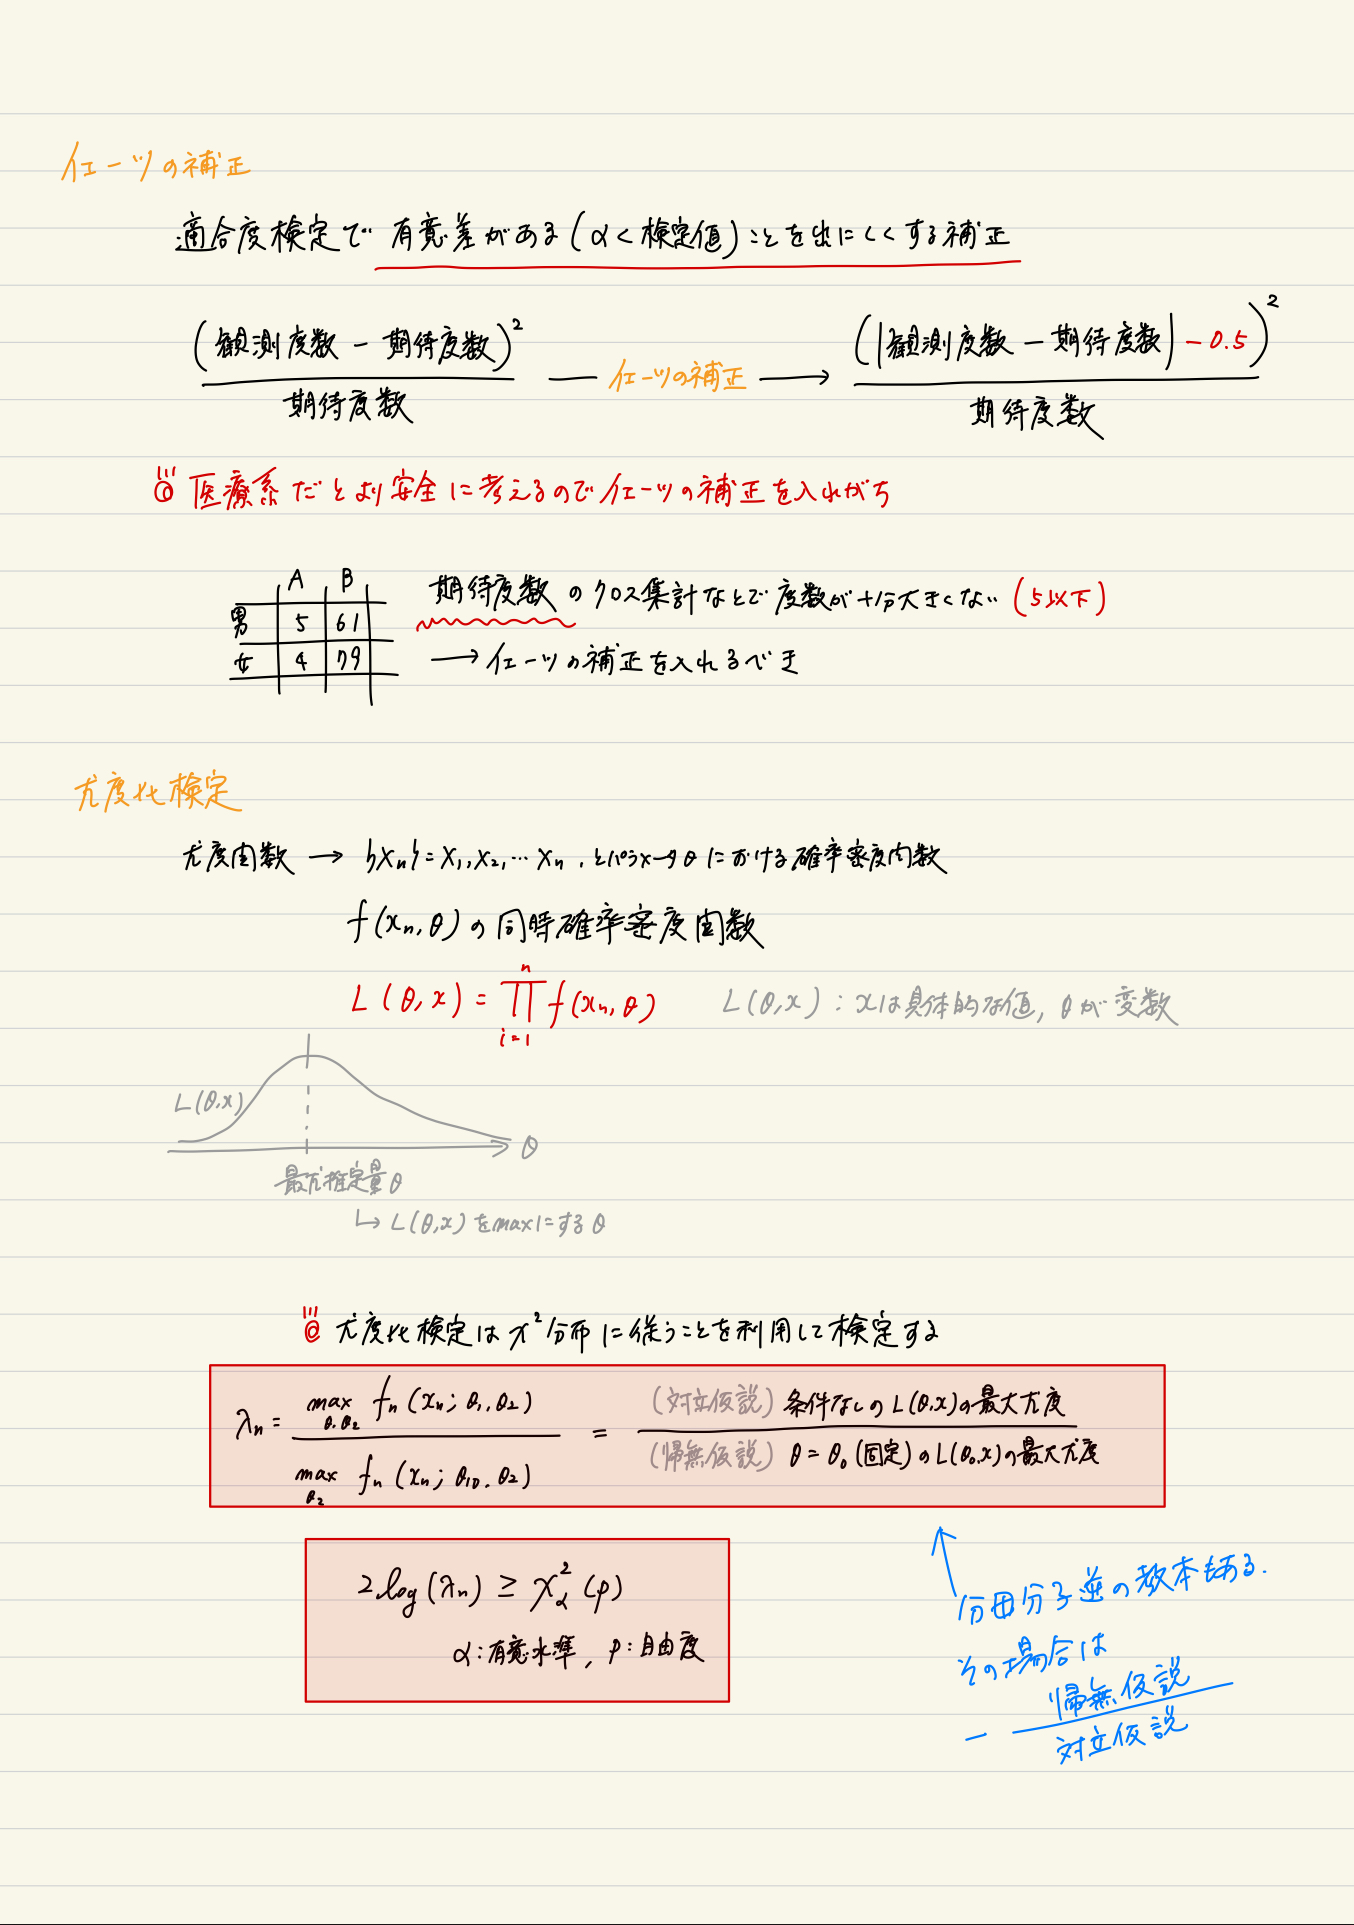 イェーツの補正
適合度検定で 有意差がある(α<検定値)ことを出にくくする補正
(観測度数 − 期待度数)² / 期待度数 — イェーツの補正 → (|観測度数 − 期待度数| − 0.5)² / 期待度数
医療系だとより安全に考えるのでイェーツの補正を入れがち
A B
男 5 61
女 4 79
期待度数 のクロス集計などで度数が十分大きくない (5以下)
→ イェーツの補正を入れるべき
尤度比検定
尤度関数 → {Xn} = X₁, X₂, … Xn, とパラメータθにおける確率密度関数
f(xn, θ)の同時確率密度関数
L(θ, x) = ∏ⁿᵢ₌₁ f(xn, θ)
L(θ,x) : xは具体的な値, θが変数
L(θ,x)
θ
最尤推定量θ
↳ L(θ,x)をmaxにするθ
尤度比検定はχ²分布に従うことを利用して検定する
λn = max θ₁,θ₂ fn(xn; θ₁, θ₂) / max θ₂ fn(xn; θ₁₀, θ₂) = (対立仮説) 条件なしのL(θ,x)の最大尤度 / (帰無仮説) θ = θ₀(固定)のL(θ₀,x)の最大尤度
2log(λn) ≥ χ²α(p)
α:有意水準, p:自由度
分母分子逆の教本もある.
その場合は
− 帰無仮説 / 対立仮説